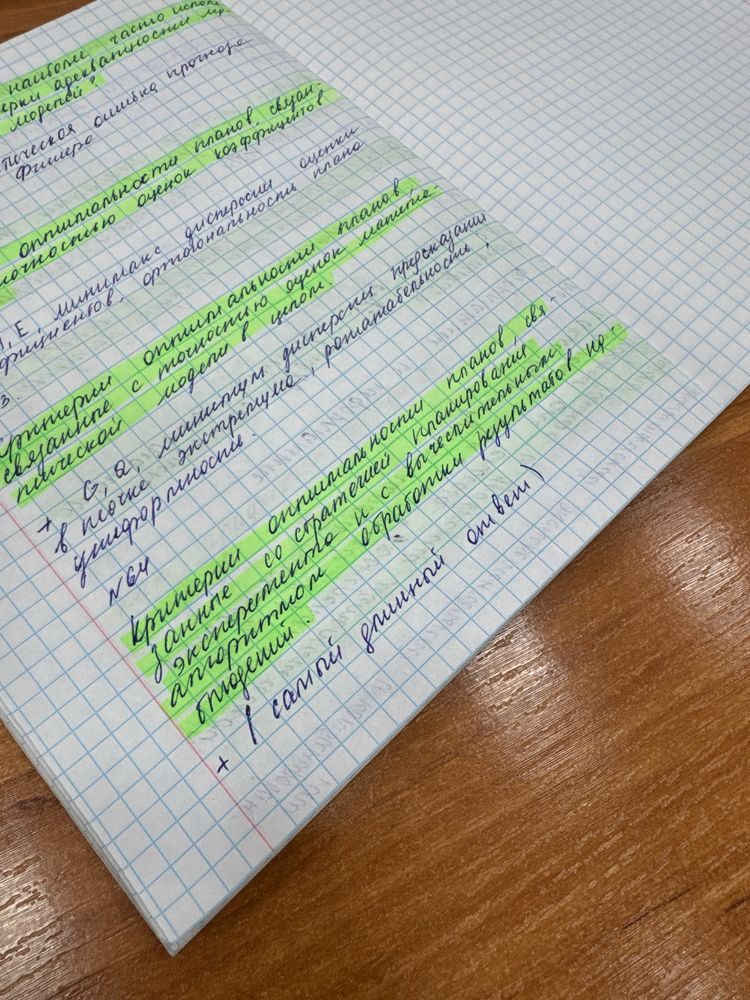 наиболее часто исполь
ерки адекватности мо-
моделей?
тическая ошибка прогноза
Фишера
оптимальности планов, связан
точностью оценок коэффициентов
E, минимакс дисперсии оценки
фициентов, ортогональность плана
3.
Критерии оптимальности планов,
связанные с точностью оценок матема-
тической модели в целом.
+ G, Q, минимум дисперсии предсказания
в точке экстремума, рототабельность,
униформность.
№64
Критерии оптимальности планов, свя-
занные со стратегией планирования
эксперимента и с вычеслительным
алгоритмом обработки результатов на-
блюдений.
+ (самый длинный ответ)